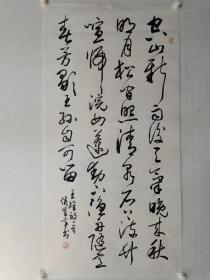 空山新雨後天氣晚來秋
明月松間照清泉石上流竹
喧歸浣女蓮動下漁舟隨意
春芳歇王孫自可留
王維詩
書